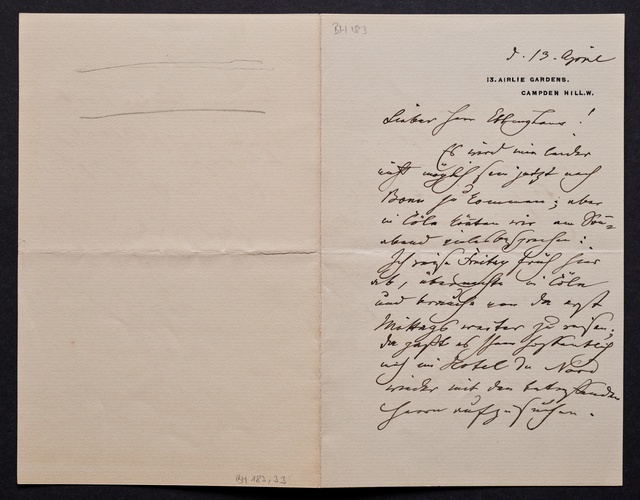 BH 183
d. 13. April
13. AIRLIE GARDENS.
CAMPDEN HILL. W.
Lieber Herr Ebbinghaus!
Es wird mir leider
nicht möglich sein jetzt nach
Bonn zu kommen; aber
in Cöln könten wir am Son=
abend gut besprechen:
Ich reise Freitag früh hier
ab, übernachte in Cöln
und brauche von da erst
Mittags weiter zu reisen;
da paßt es Ihnen hoffentlich
mich im Hotel du Nord
wieder mit den
Herrn aufzusuchen.
BH 183,33